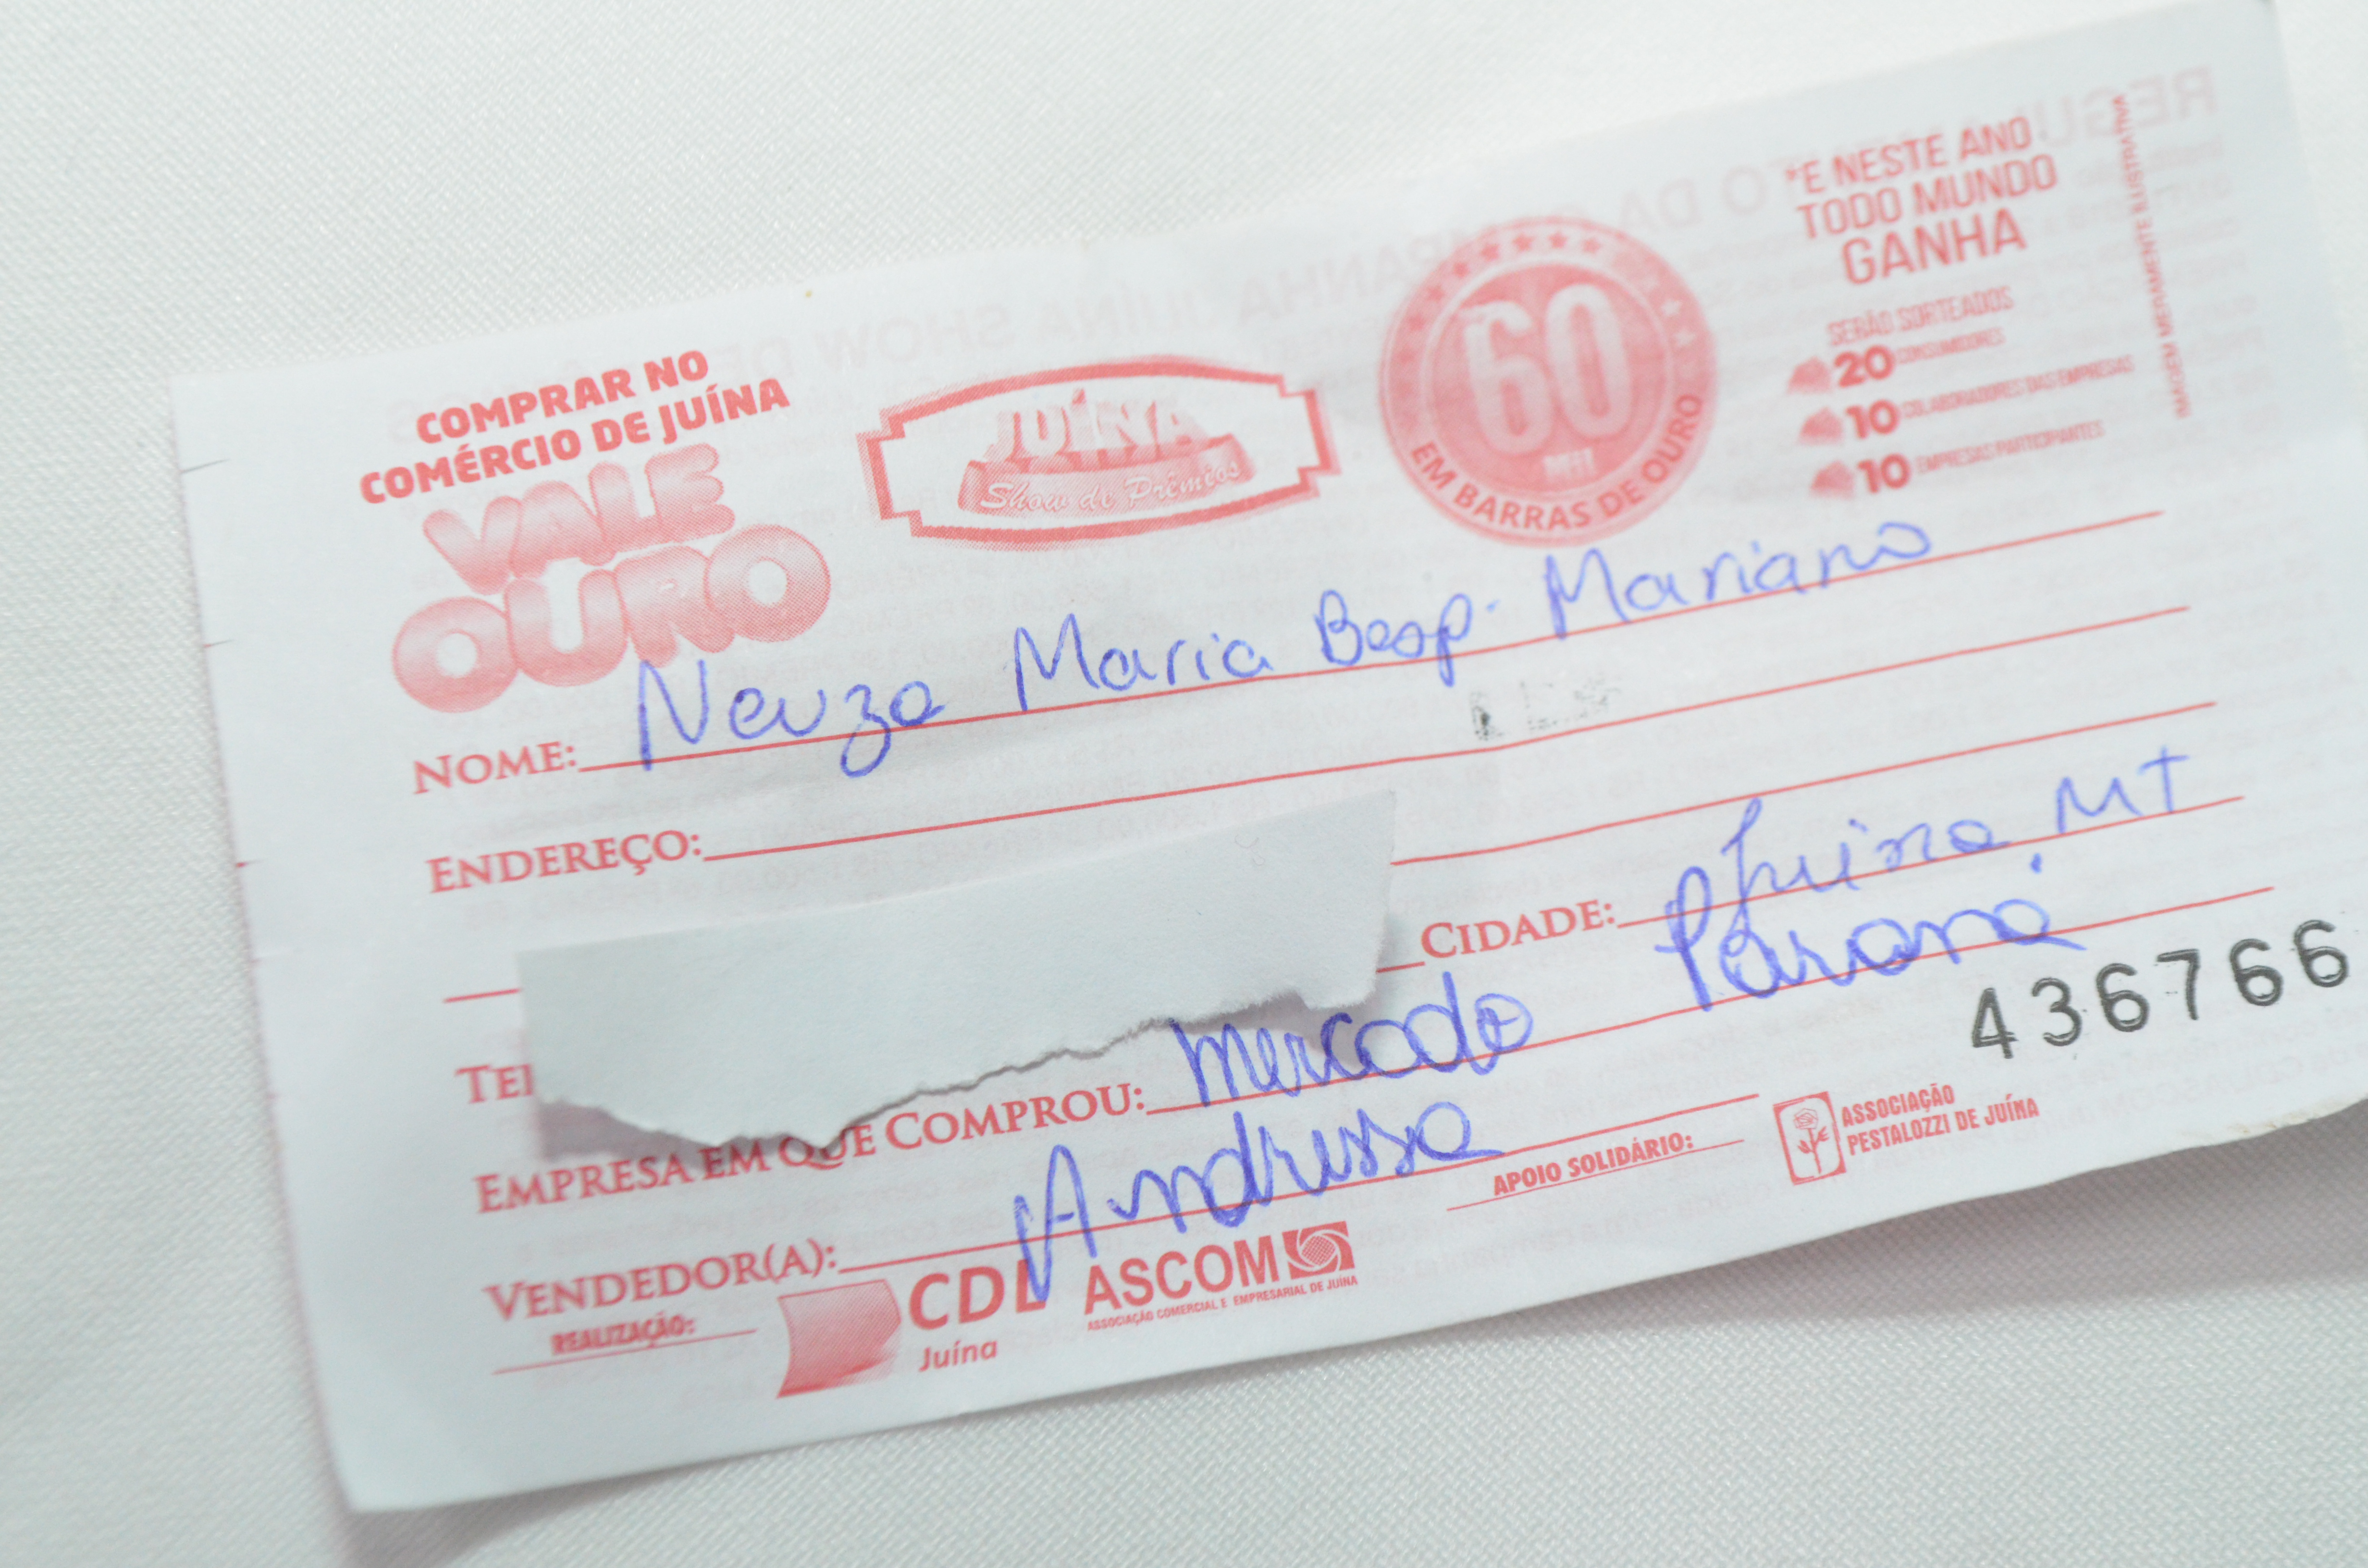 COMPRAR NO
COMÉRCIO DE JUÍNA
VALE
OURO
JUÍNA
Show de Prêmios
60
MIL
EM BARRAS DE OURO
*E NESTE ANO
TODO MUNDO
GANHA
SERÃO SORTEADOS
20 CONSUMIDORES
10 COLABORADORES DAS EMPRESAS
10 EMPRESAS PARTICIPANTES
IMAGEM MERAMENTE ILUSTRATIVA
NOME: Neuza Maria Besp. Mariano
ENDEREÇO:
CIDADE: Juina. MT
TEL
EMPRESA EM QUE COMPROU: Mercado Paraná
436766
VENDEDOR(A): Andressa
APOIO SOLIDÁRIO:
ASSOCIAÇÃO
PESTALOZZI DE JUÍNA
REALIZAÇÃO:
CDL
Juína
ASCOM
ASSOCIAÇÃO COMERCIAL E EMPRESARIAL DE JUÍNA